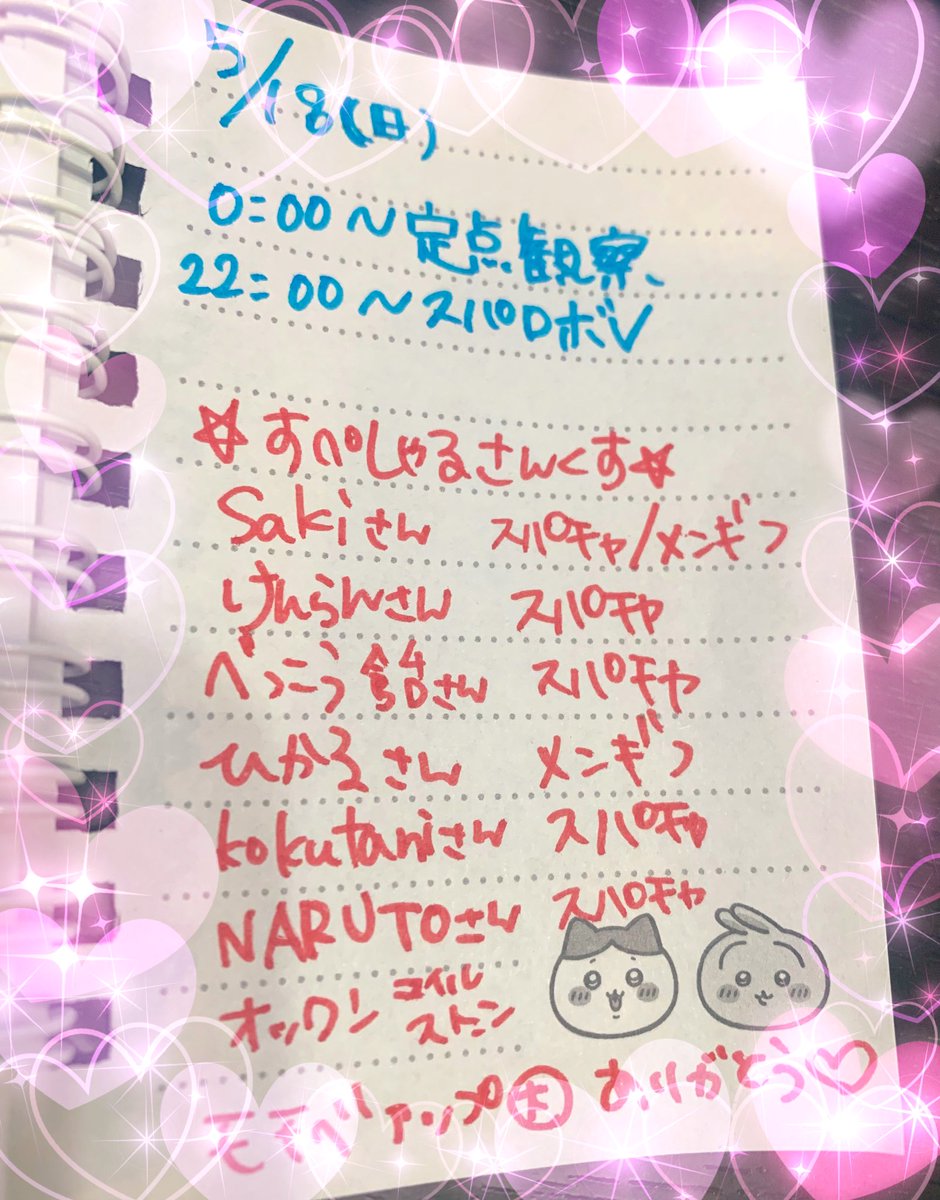 5/18(日)
0:00～定点観察、
22:00～スパロボV
☆すぺしゃるさんくす☆
Sakiさん スパチャ/メンギフ
けんらんさん スパチャ
べっこう飴さん スパチャ
ひかるさん メンギフ
kokutaniさん スパチャ
NARUTOさん スパチャ
オックン コイル
ストーン
アップ主 ありがとう♡